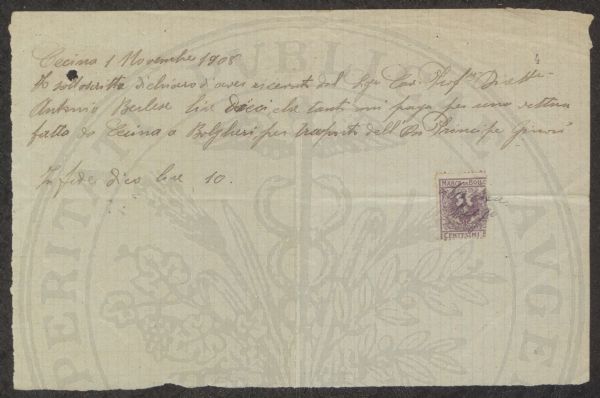 Cecina 1 Novembre 1908
Io sottoscritto dichiaro d'aver ricevuto dal Sigr Cav. Profre Dirette
Antonio Berlese lire dieci che tanti mi paga per una vettura
fatta da Cecina a Bolgheri per trasporto dell'On Principe Ginori
In fede dico lire 10.
4
MARCA DA BOLLO
CENTESIMI